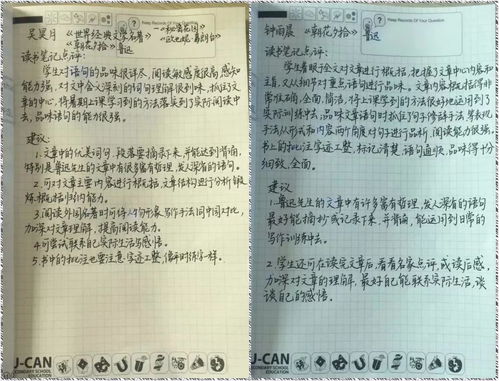 Keep Records Of Your Question
吴昊月 《世界经典文学名著》
《秘密花园》
《朝花夕拾》 鲁迅
《欧也妮·葛朗台》
读书笔记点评:
学生对语句的品味很详尽,阅读敏感度很高,感知
能力强,对文中含义深刻的语句理解很到味,抓住了文
章的中心,将暑期上课学习到的方法落实到了实际阅读中
去,品味语句的能力很强。
建议:
1.文章中的优美词句,段落要摘录下来,并能达到背诵,
特别是鲁迅先生的文章中有很多富有哲理,发人深省的语句。
2.可对文章主要内容进行概括,文章结构进行分析,锻
炼概括归纳能力。
3.阅读外国名著时可将人物形象,写作手法同中国对比,
加深对文章理解,提高阅读能力。
4.可尝试联系自己实际生活写感悟。
5.书中的批注也要注意字迹工整,像平时练字一样。
J-CAN
SECONDARY SCHOOL
EDUCATION
Keep Records Of Your Question
钟雨晨 《朝花夕拾》 鲁迅
读书笔记点评:
学生着眼于全文对文章进行概括,把握了文章中心内容和
主旨,又从细节对重点语句进行品味。文章内容概括得非
常准确,全面,简洁,将上课学到的方法很好地运用到了
实际训练中去,品味文章语句时抓住了句子修辞手法等表现
手法从形式和内容两个角度对句子进行品析,阅读能力很强,
书上的批注字迹工整,标记清楚,语句通快,品味得十分
细致,全面。
建议
1.鲁迅先生的文章中有许多富有哲理,发人深省的语句
最好能摘抄或记录下来,并背诵,能运用到日常的
写作训练中去。
2.学生还可在读完文章后,看看名家点评,或读后感,
加深对文章的理解,最好自己能联系实际生活,谈
谈自己的感悟。
J-CAN
SECONDARY SCHOOL
EDUCATION